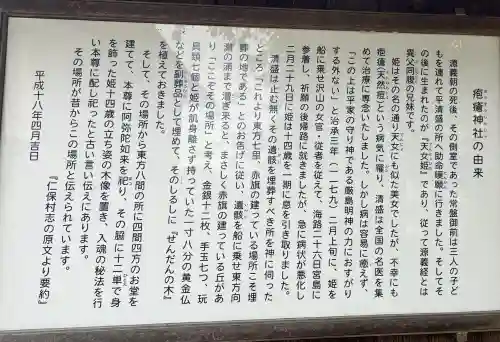 疱瘡神社の由来
源義朝の死後、その側室であった常盤御前は三人の子ど
もを連れて平清盛の所へ助命嘆願に行きました。そしてそ
の後に生まれたのが『天女姫』であり、従って源義経とは
異父同腹の兄妹です。
姫はその名の通り天女にも似た美女でしたが、不幸にも
疱瘡(天然痘)という病気に罹り、清盛は全国の名医を集
めて治療に専念いたしました。しかし病は容易に癒えず、
「この上は平家の守り神である厳島明神の力におすがり
する外ない」と治承三年(一一七九)二月上旬に、姫を
船に乗せ沢山の女官・従者を従えて、海路二十六日宮島に
参着し、祈願の後帰路に就きましたが、急に病状が悪化し
二月二十九日に姫は十四歳を一期に息を引き取りました。
清盛は止む無くその遺骸を埋葬すべき所を神に伺った
ところ「これより東方七里、赤旗の建っている場所こそ埋
葬の地である」とのお告げに従い、遺骸を船に乗せ東方向
灘の浦まで漕ぎ来ると、まさしく赤旗の建っている丘があ
り「ここぞその場所」と考え、金銀十二枚、手玉七つ、玩
具類七個と姫が肌身離さず持っていた一寸八分の黄金仏
などを副葬品として埋めて、そのしるしに『せんだんの木』
を植えておきました。
そして、その場所から東方八間の所に四間四方のお堂を
建てて、本尊に阿弥陀如来を祀り、その脇に十二単で身
を飾った姫十四歳の立ち姿の木像を置き、入魂の秘法を行
い本尊に配し祀ったと古い言い伝えにあります。
その場所が昔からこの場所と伝えられています。
『仁保村志の原文より要約』
平成十八年四月吉日